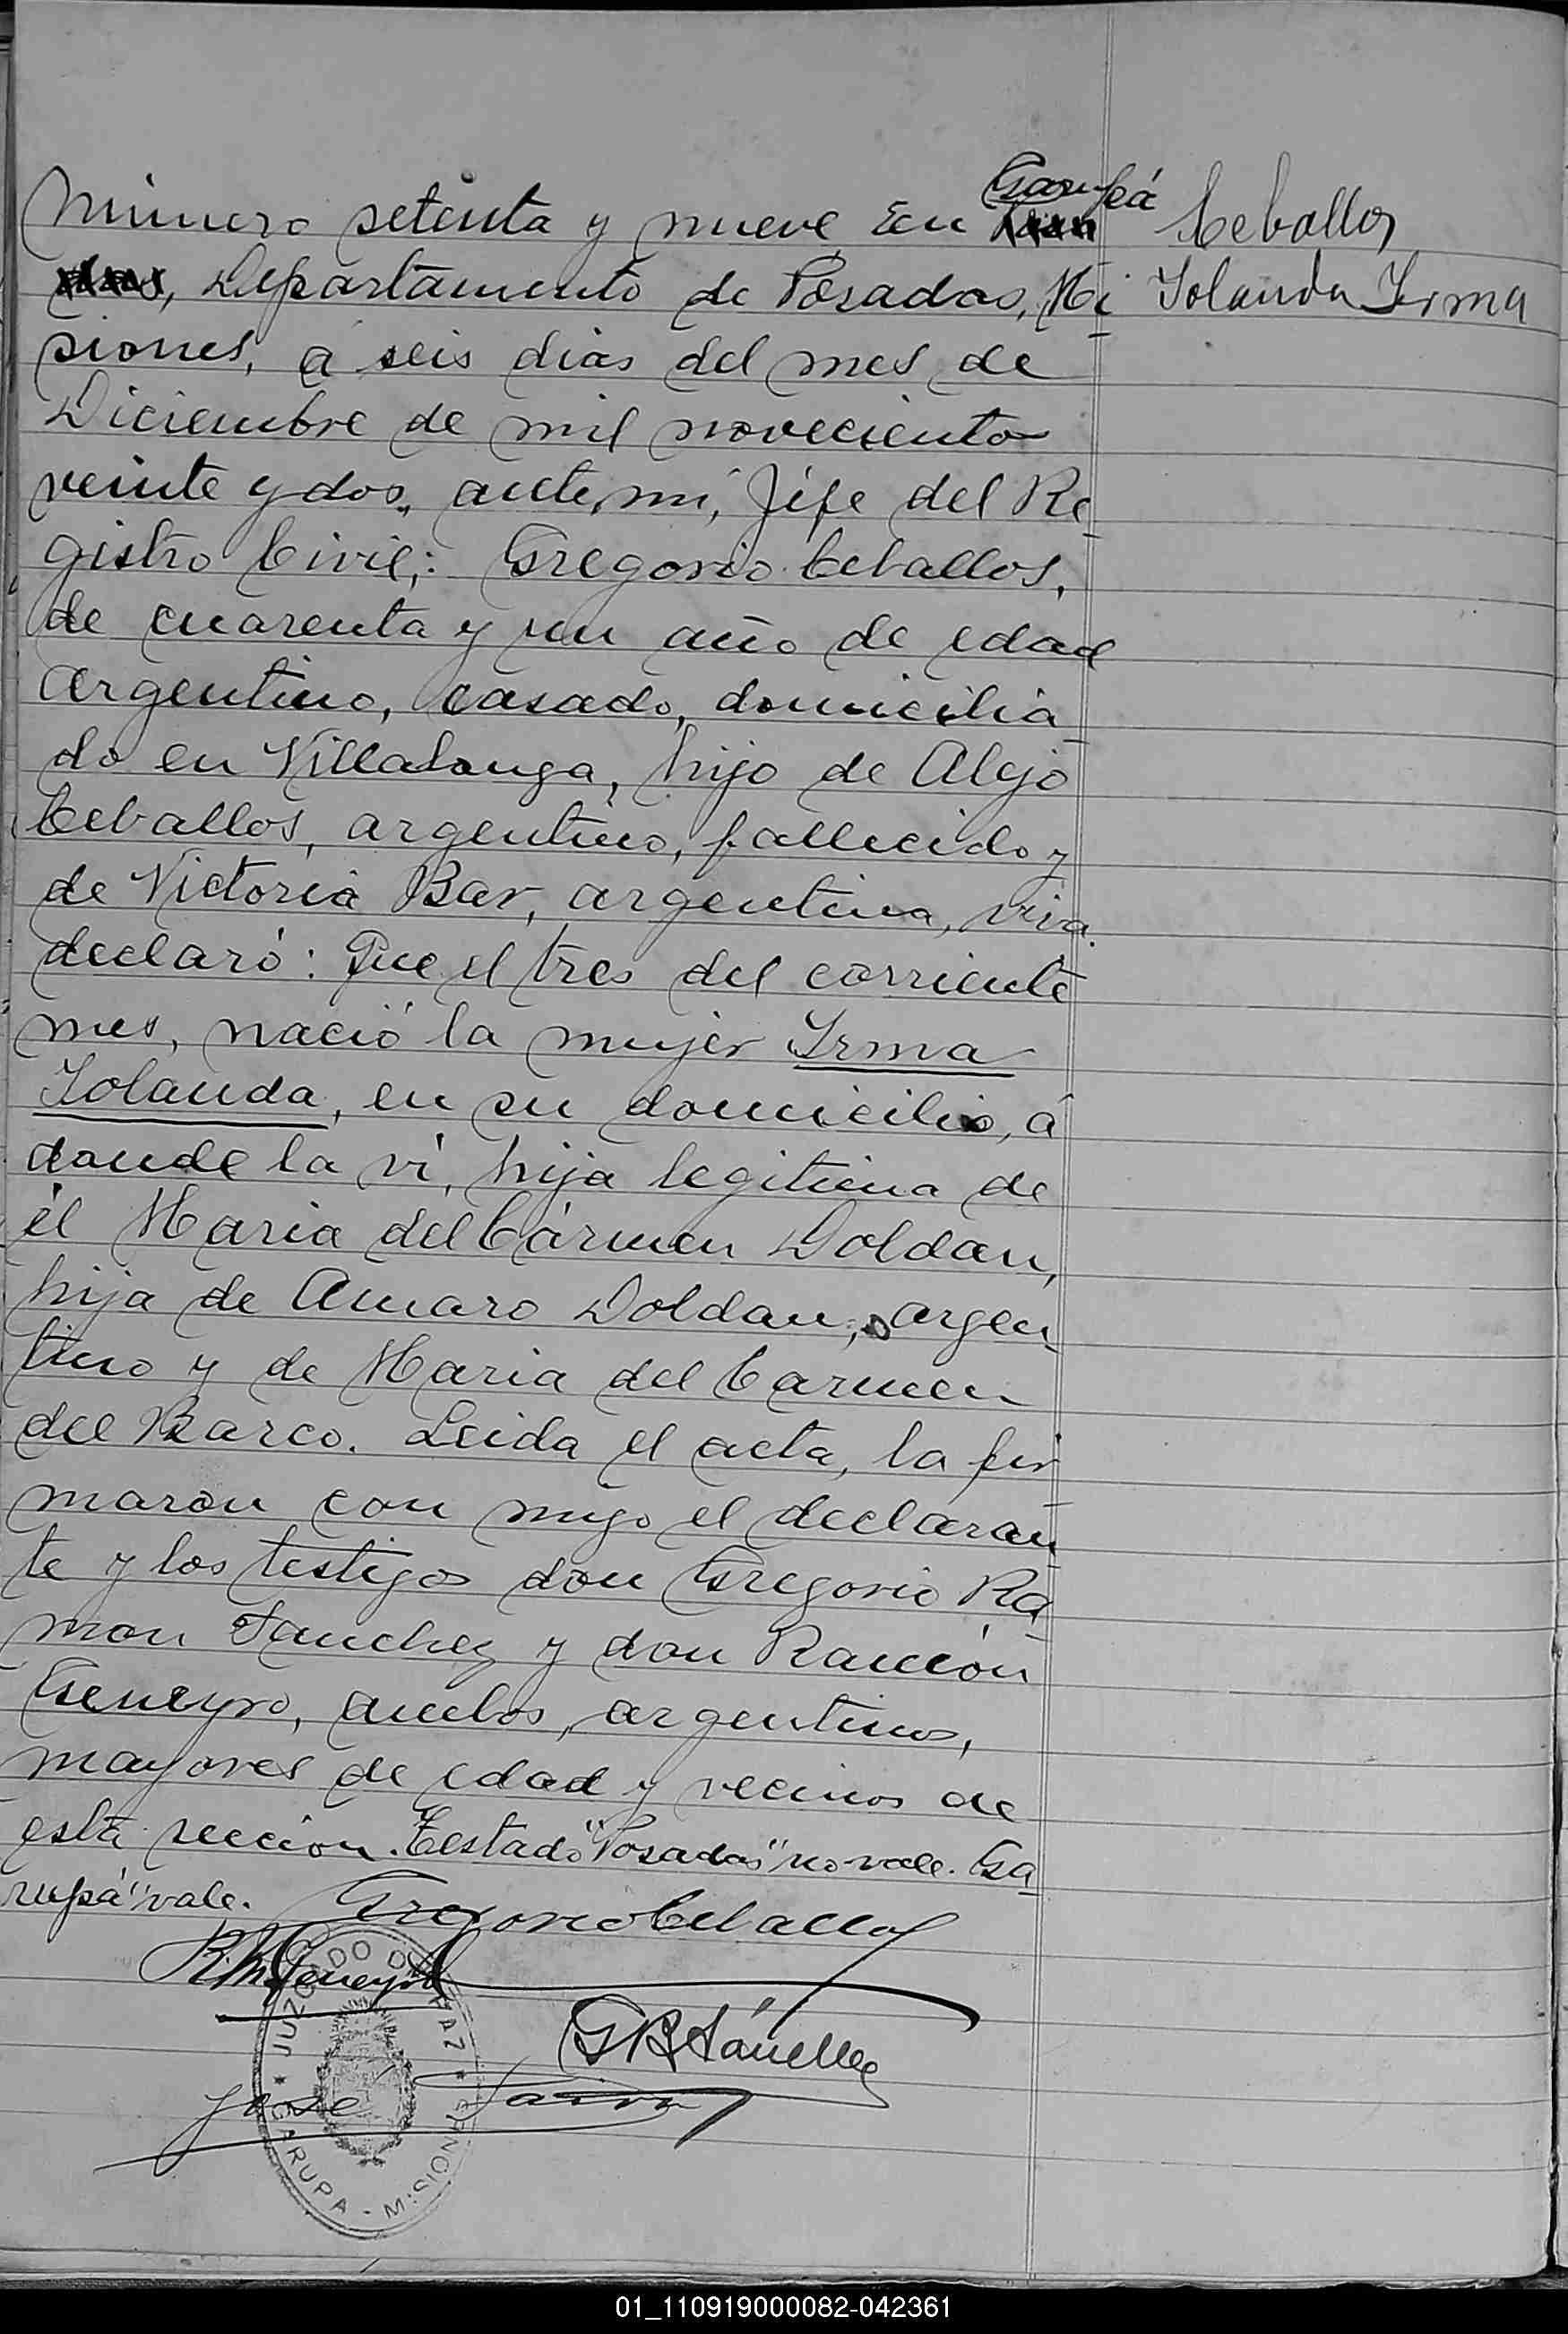 Garupá
Número setenta y nueve En
Ceballos
Departamento de Posadas, Mi
Yolanda Irma
siones, a seis dias del mes de
Diciembre de mil novecientos
veinte y dos, ante mi, Jefe del Re
gistro Civil; Gregorio Ceballos,
de cuarenta y un año de edad
argentino, casado, domicilia
do en Villalonga, hijo de Alejo
Ceballos, argentino, fallecido y
de Victoria Bar, argentina, viva
declaró: Que el tres del corriente
mes, nació la mujer Yrma
Yolanda, en su domicilio, á
donde la vi, hija legitima de
él Maria del Cármen Doldan,
hija de Amaro Doldan, argen
tino y de Maria del Carmen
del Barco. Leida el acta, la fir
maron con migo el declaran
te y los testigos don Gregorio Ra
mon Sanchez y don Ramón
Geneyro, ambos, argentinos,
mayores de edad y vecinos de
esta seccion. Testado "Posadas" no vale. Ga
rupá" vale.
Gregorio Ceballos
R. M. Geneyro
G R Sánchez
José
JUZGADO DE PAZ
GARUPA - MISIONES
01_110919000082-042361